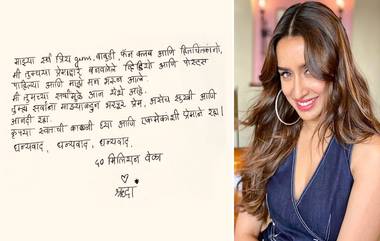 माझ्या सर्व प्रिय gum, बाबुडी, फॅन क्लब आणि हितचिंतकांनो,
मी तुमच्या प्रेमाद्वारे बनवलेले व्हिडिओ आणि पोस्ट्स
पाहिल्या आणि माझं मन भरून आले
मी तुमच्या सर्वांमुळे आज येथे आहे.
तुम्हा सर्वांना माझ्याकडून भरपूर प्रेम, असेच सुखी आणि
आनंदी रहा.
कृपया स्वतःची काळजी घ्या आणि एकमेकांशी प्रेमाने रहा!
धन्यवाद, धन्यवाद, धन्यवाद,
५० मिलियन वेळा
श्रद्धा